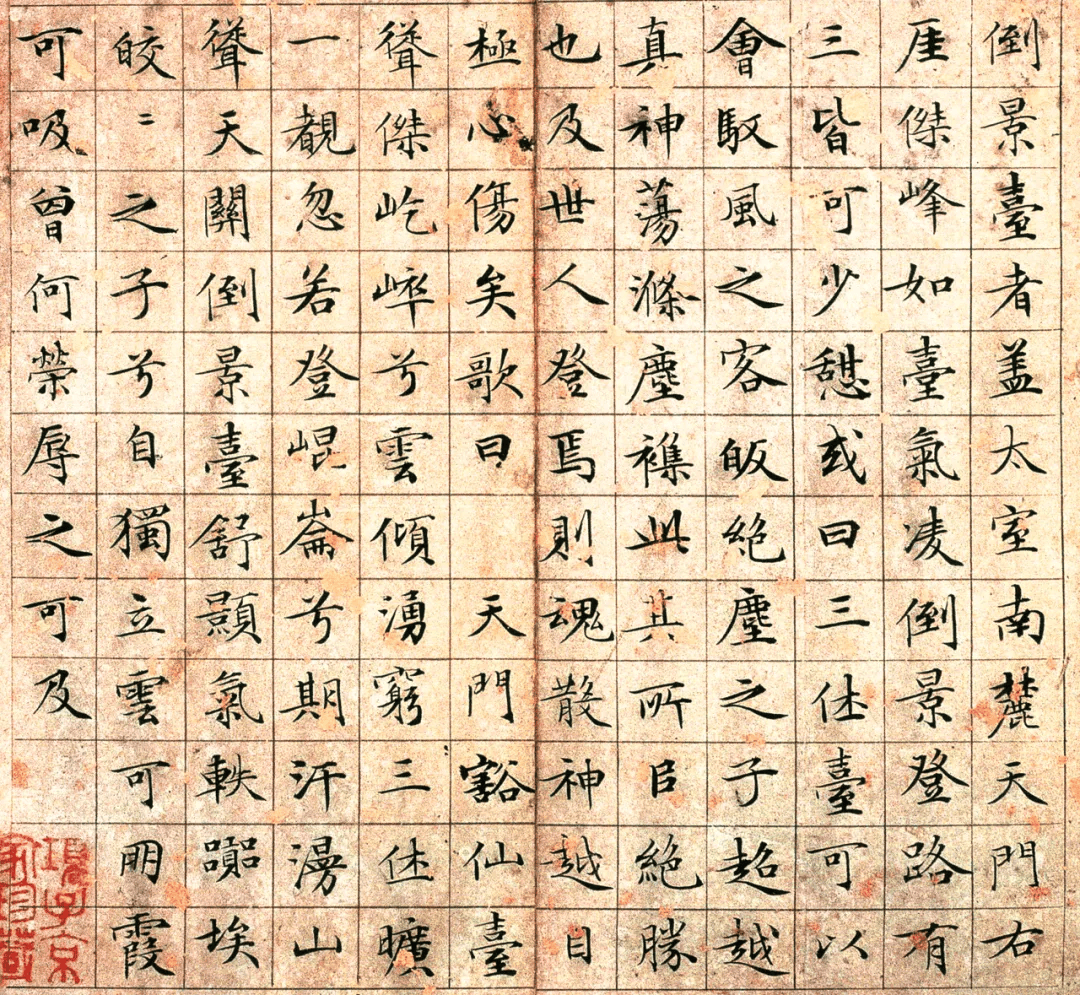 倒景臺者盖太室南麓天門右
厓傑峰如臺氣凌倒景登路有
三皆可少憩或曰三休臺可以
會馭風之客皈絶塵之子超越
真神蕩滌塵襍此其所㠯絶勝
也及世人登焉則魂散神越目
極心傷矣歌曰 天門豁仙臺
聳傑屹崒兮雲傾湧窮三休曠
一覩忽若登崐崙兮期汗漫山
聳天關倒景臺舒顥氣軼囂埃
皎〻之子兮自獨立雲可朋霞
可吸曾何榮辱之可及
項子京家珍藏